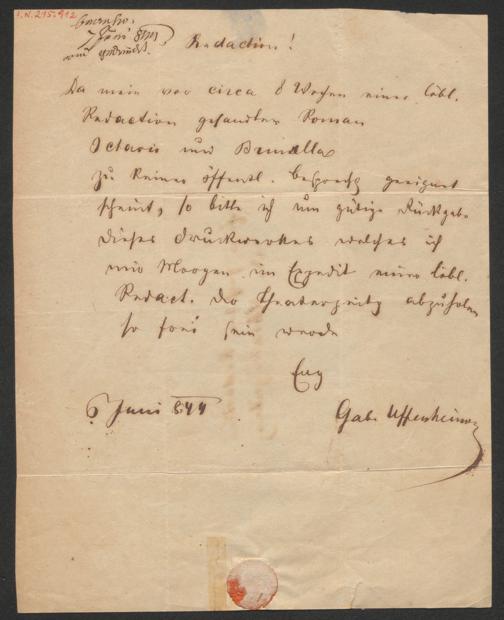 I.N. 215.912
7 Juni 844
Redaction!
Da mein vor circa 8 Wochen einer löbl.
Redaction gesandter Roman
Octavio und Brunella
zu keiner öffentl. Besprechg geeignet
scheint, so bitte ich um gütige Rückgabe
dieses Druckwerkes welches ich
mir Morgen im Expedit einer löbl.
Redact. der Theaterzeitg abzuholen
so frei sein werde
6 Juni 844
Gab. Uffenheimer